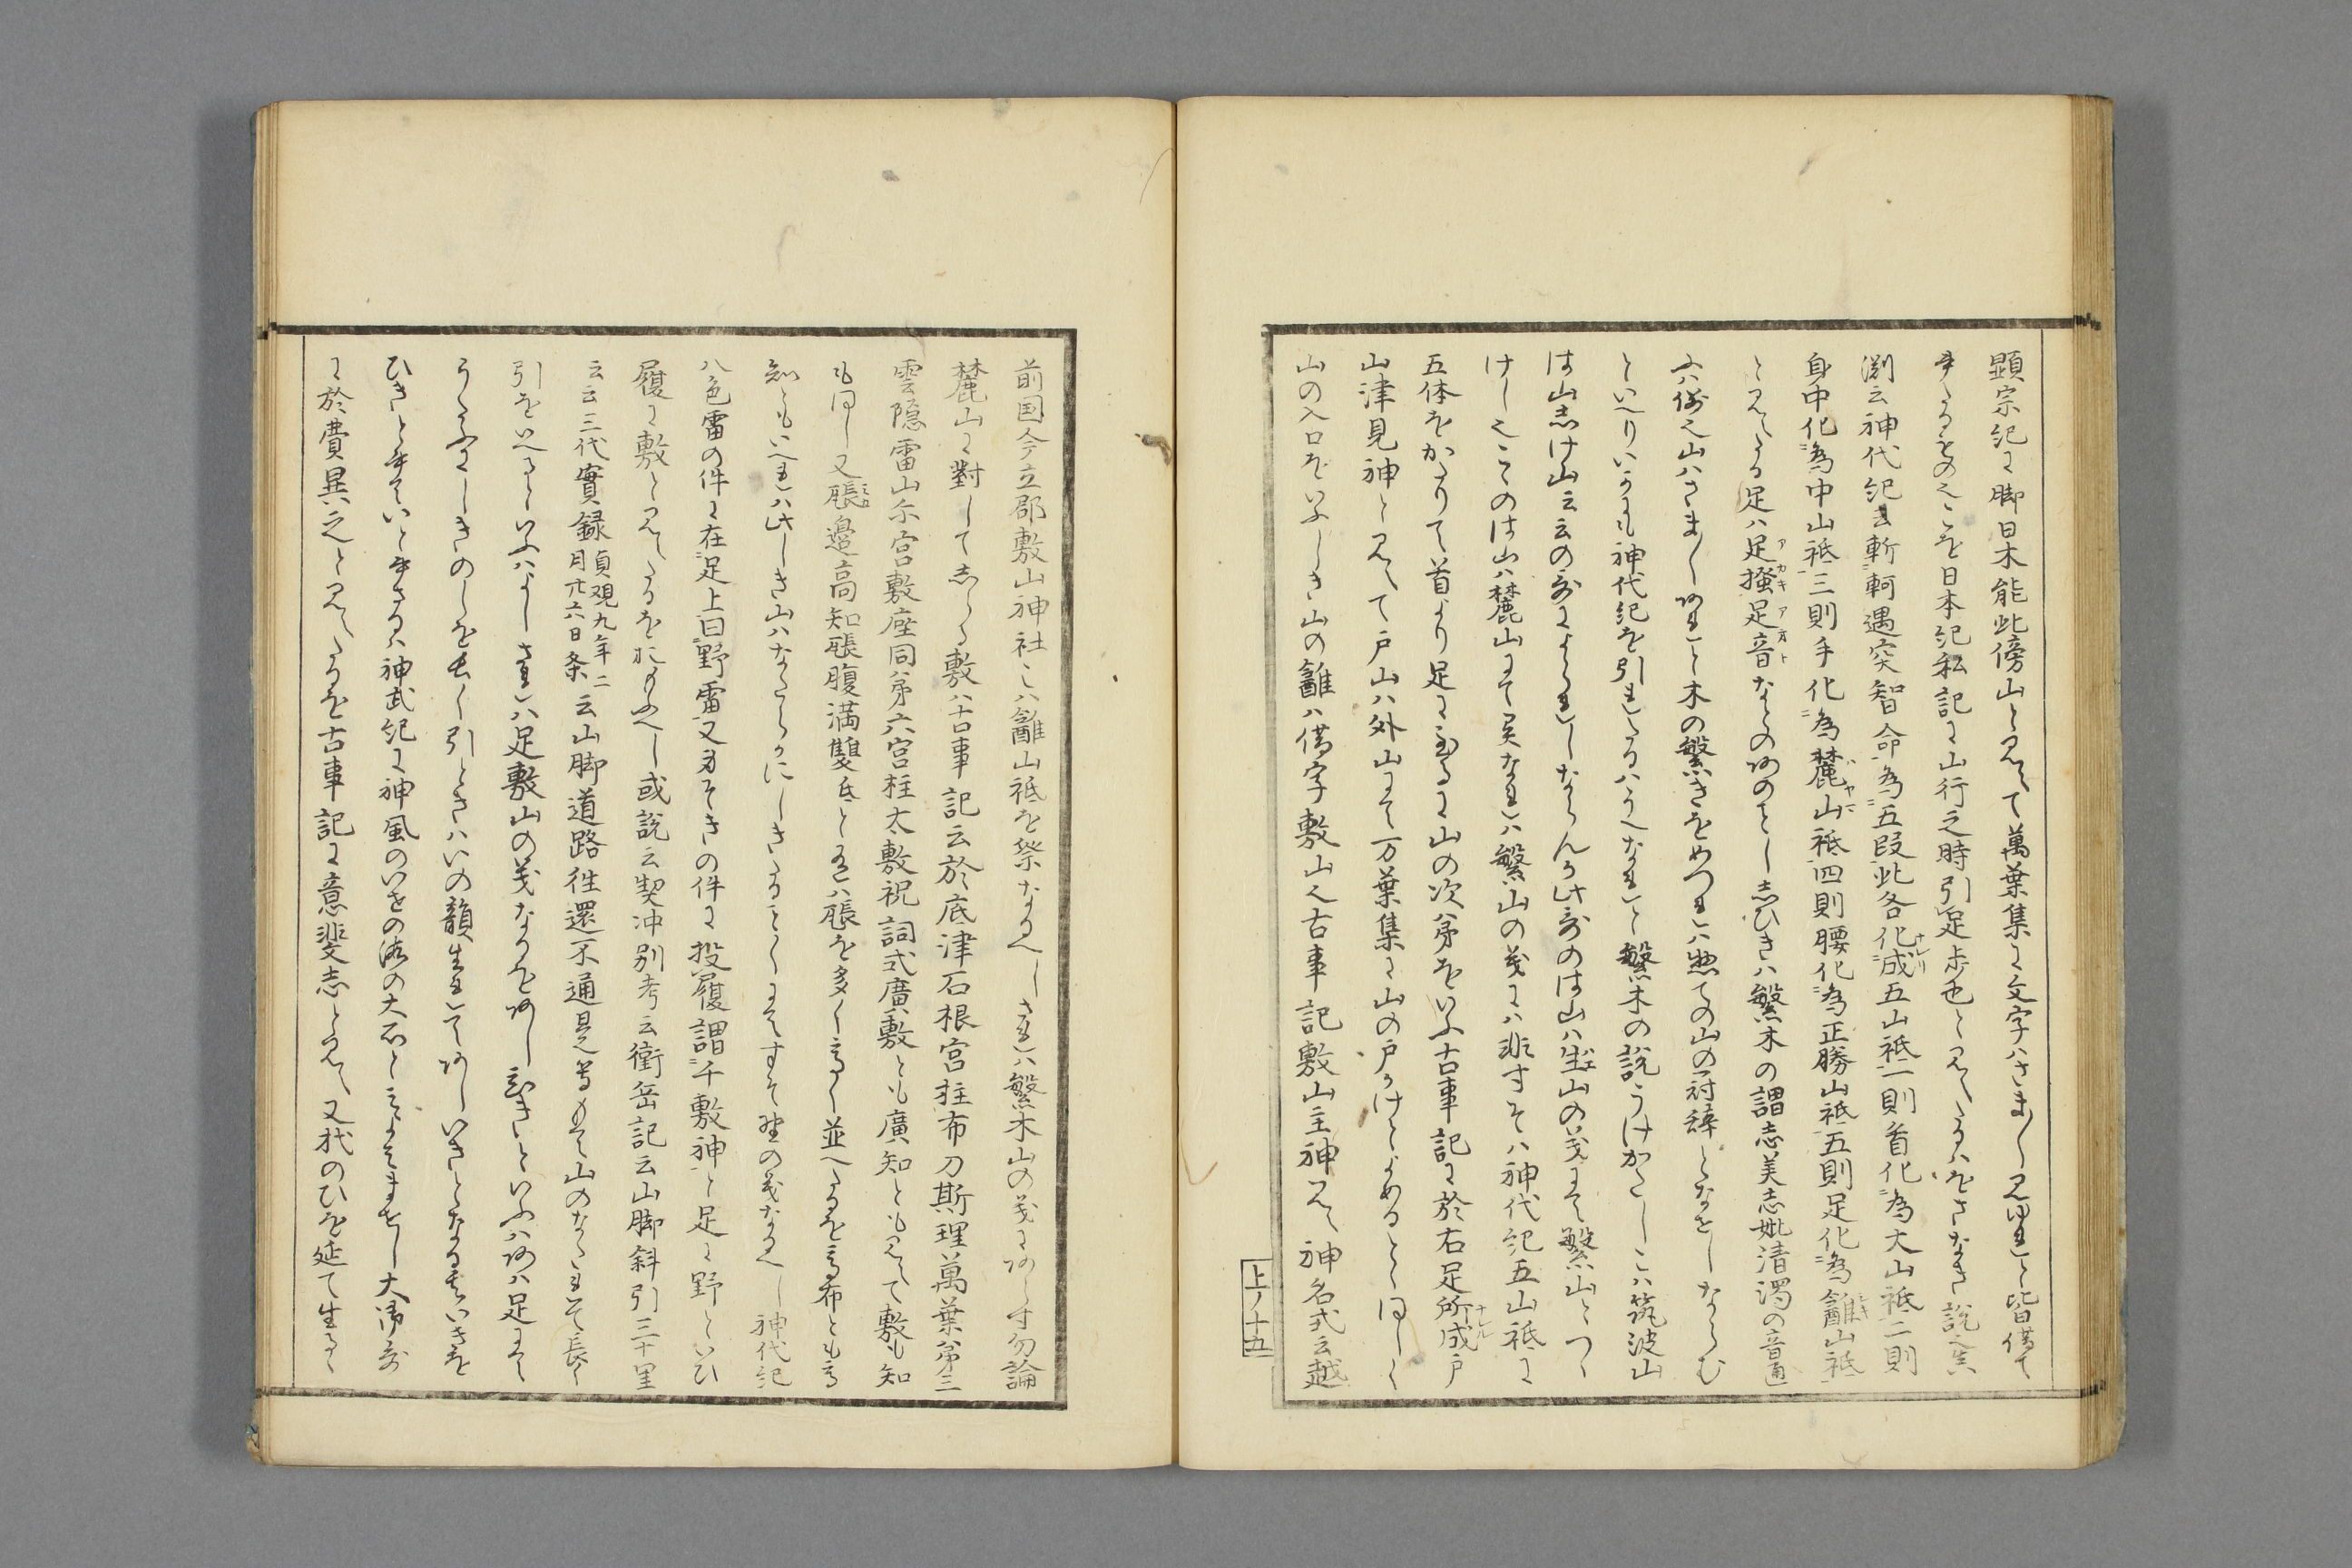 顕宗紀に脚日木能此傍山と見えて萬葉集に文字ハさま〱見ゆれと皆借て
書たるものミそ日本紀私記に山行之時引足歩也と見えたるハをさなき説ミ
渕云神代紀云斬軻遇突智命為五段此各化成五山祇一則首化為大山祇二則
身中化為中山祇三則手化為麓山祇四則腰化為正勝山祇五則足化為䨄山祇
と見えたる足ハ足搔足音なとのあのことし志ひきハ繁木の謂志美志妣清濁の音通
ふ例之山ハさま〱あれと木の繁きをめつれハ惣ての山の冠辞となせしならむ
といへりいかにも神代紀を引れたるハうへなれと繁木の説うけかたしこハ筑波山
は山志け山云云の哥によられしならんか此哥のは山ハ生山の義にて繁山とつゝ
けしミこのは山ハ麓山にて異なれハ繁山の義にハ非すそハ神代紀五山祇に
五体をかたりて首より足に至るに山の次第をいふ古事記に於右足所成戸
山津見神と見えて戸山ハ外山にて万葉集に山の戸かけとよめるとひとしく
山の入口をいふしき山の䨄ハ借字敷山え古事記敷山主神見え神名式云越
上ノ十五
前国今立郡敷山神社こハ䨄山祇を祭なるへしされハ繁木山の義にあらす勿論
麓山に對して志らる敷ハ古事記云於底津石根宮柱布刀斯理萬葉第三
雲隠雷山尓宮敷座同第六宮柱太敷祝詞式廣敷とも廣知とも見えて敷も知
も同し又脹邊高知脹腹満雙氐と有ハ脹を多く高く並へたるを高布とも高
知ともいへれハ此しき山ハなたらかにしきたることくにてすそ野の義なるへし神代紀
八色雷の件に在足上曰野雷又ことそきの件に投履謂千敷神と足に野といひ
履に敷と見えたるをおもふへし或説云契冲別考云衝岳記云山脚斜引三十里
云云三代實録貞観九年二月廿六日条云山脚道路往還不通是等もて山のなたれて長く
引をいへるといふハよしされハ足敷山の義なるをあしひきといふハあハ足にて
うたふにしきのしを長く引ときハいの韻生れてあしいきとなる其いきを
ひきと書ていと書さるハ神武紀に神風のいせの海の大石とミよませし大御哥
に於費異之と見えたるを古事記に意斐志と見え又代のひを延て生るゝ